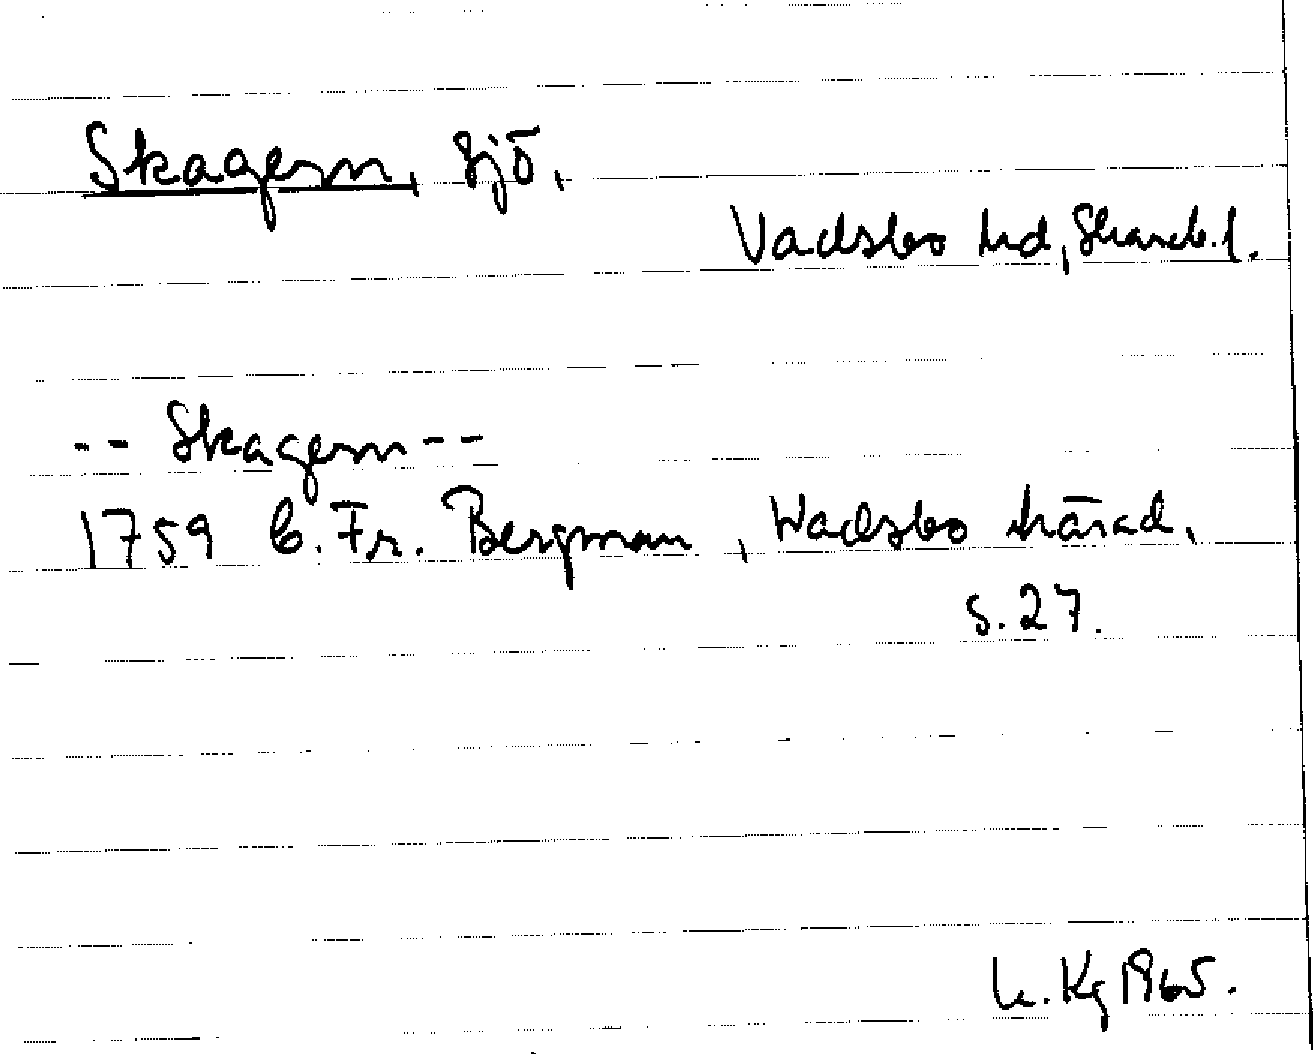 Skagern, sjö,
Vadsbo hd, Skarab.l.
-- Skagern --
1759 C. Fr. Bergman, Wadsbo härad,
s. 27.
L. Kg 1965.